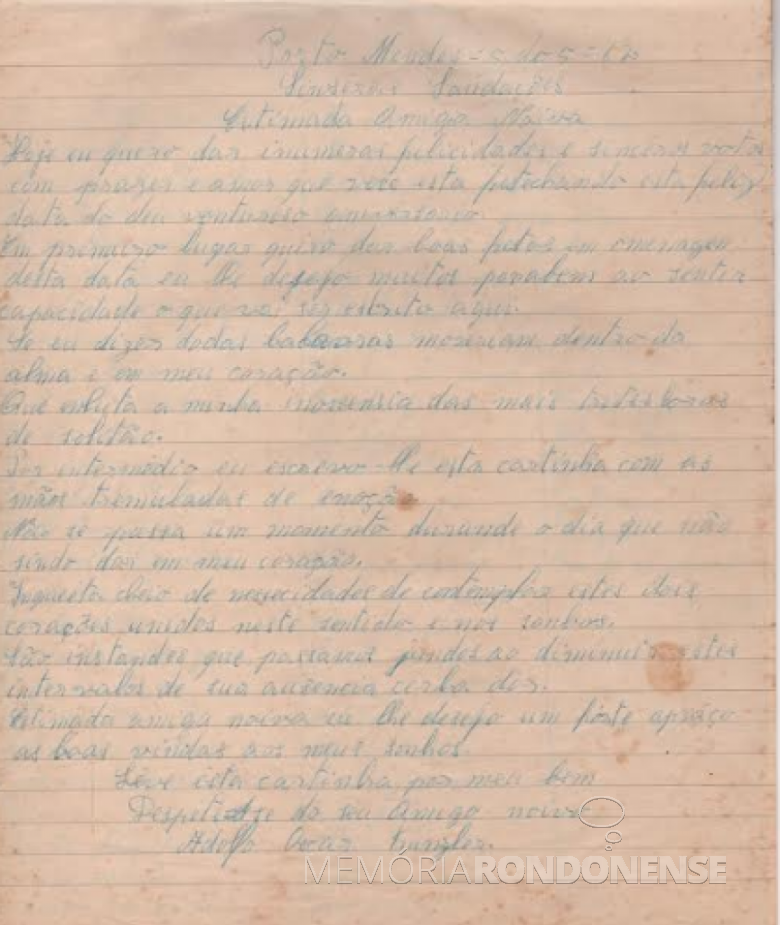 Porto Mendes = 5 do 5 =
Sinseras Saudações
Estimada Amiga Noiva
Hoje eu quero dar inumeras felicidades e sinceros votos
com prazer e amor que você esta festechando esta feliz
data do deu venturoso aniversario.
Em primeiro lugar quiro dar boas festas em omenagen
desta data eu lhe desejo muitos parabem ao sentir
capacidade o que vai ser escrito aqui.
Se eu dizer dodas balavras moreriam dentro da
alma e em meu coração.
Que enluta a minha inosensia das mais tristes horas
de solitão.
Por intermédio eu escrevo-lhe esta cartinha com as
mãos tremuladas de emoção
Não se passa um momento durande o dia que não
sindo dor em meu coração.
cheio de nessecidades de contemplar estes dois
corações unidos neste sentido e nos sonhos.
São instandes que passamos jundos ao diminuir estes
intervalos de sua ausencia cerba dor.
Estimada amiga noiva eu lhe desejo um forte apreço
as boas vindas aos meus sonhos.
Leve esta cartinha por meu bem
do seu Amigo noivo
Adolfo Oscar
MEMÓRIARONDONENSE